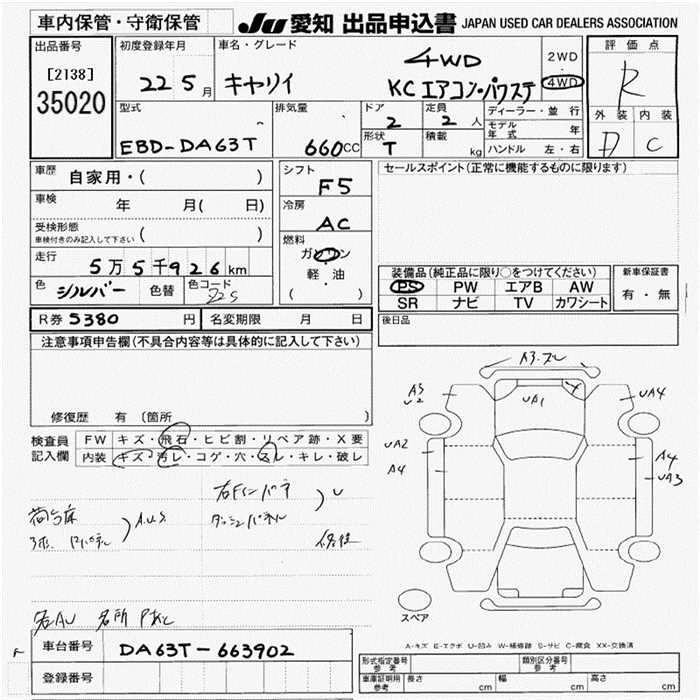 車内保管・守衛保管
JU 愛知 出品申込書 JAPAN USED CAR DEALERS ASSOCIATION
出品番号
[2138]
35020
初度登録年月
22 5月
車名・グレード
キャリイ
4WD
KC エアコン・パワステ
2WD
・
4WD
評価点
R
外装 内装
D C
型式
EBD-DA63T
排気量
660CC
ドア
2
形状
T
定員
2人
積載
kg
ディーラー・並行
モデル年式 年
ハンドル 左・右
車歴 自家用・( )
車検 年 月( 日)
受検形態
車検付きのみ記入して下さい ( )
走行 5万5千926km
色 シルバー 色替 色コード
シフト
F5
冷房
AC
燃料
ガソリン
軽・油
( )
セールスポイント(正常に機能するものに限ります)
装備品(純正品に限り○をつけてください)
PS PW エアB AW
SR ナビ TV カワシート
新車保証書
有・無
後日品
R券 5380 円 名変期限 月 日
注意事項申告欄(不具合内容等は具体的に記入して下さい)
修復歴 有 〔箇所 〕
検査員記入欄
FW キズ・飛石・ヒビ割・リペア跡・X要
内装 キズ・汚レ・コゲ・穴・スレ・キレ・破レ
A.U.S
ダッシュパネル
U
修復
A3
U2
UA1
UA4
UA2
A4
A4
UA3
スペア
A-キズ E-エクボ U-凹み W-補修跡 S-サビ C-腐食 XX-交換済
車台番号 DA63T-663902
登録番号
形式指定番号
参考
類別区分番号
参考
車庫証明用
参考
長さ cm 幅 cm 高さ cm